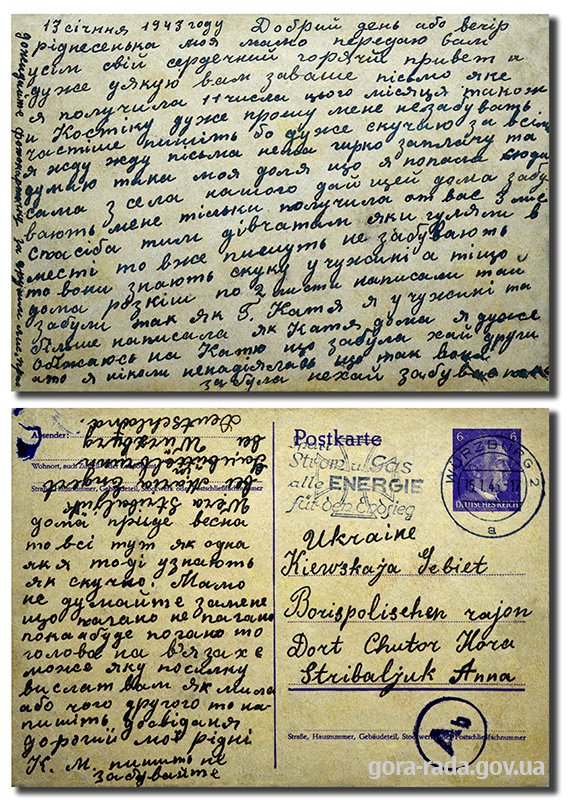 13 січння 1943 году Добрий день або вечір
ріднесенька моя мамо передаю вам
усім свій сердечний горячий привет а
дуже дякую вам заваше письмо яке
я получила 11 числа цього місяця також
и Костіку дуже прошу мене незабувать
частіше пишіть бо дуже скучаю за всім
я жду жду письма нема гирко заплачу та
думаю така моя доля що я попала сюди
сама з села нашого дай щей дома забу
вають мене тільки получила от вас 3 писм
спасіба тим дівчатам яки гуляли в
месті то вже пишуть не забувають
то вони знають скуку у чужині а тіщо
дома розкіш по 2 листи написали тай
забули так як Г. Катя я у чужині та
більше написала як Катя дома я дуже
обіжаюсь на Катю що забула хай други
ато я ніколи ненадіялась що так вона
забула нехай забуває
Postkarte
Absender:
Wera Stribaljuk
bei Würzburg
Deutschland.
Wohnort, auch Zustell- oder Leitpostamt
Straße, Hausnummer, Gebäudeteil, Stockwerk oder Postschließfachnummer
дома приде весна
то всі тут як одна
яка тоді узнають
як скучно, Мамо
не думайте замене
що погано не погано
пока а буде погано то
голова на вязах є
може яку посилку
вислат вам як мила
або чого другого то на-
пишіть досвіданя
дорогії мої рідні
К. М. пишіть не
забувайте
Strom u. Gas
alle ENERGIE
für den Endsieg
WÜRZBURG 2
a
6 6
DEUTSCHES REICH
Ukraine
Kiewskaja Gebiet
Borispolischen rajon
Dort Chutor Hora
Stribaljuk Anna
Straße, Hausnummer, Gebäudeteil, Stockwerk oder Postschließfachnummer
Ab
gora-rada.gov.ua